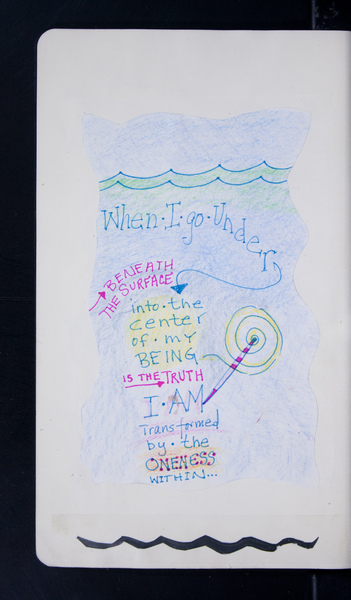 When·I·go·Under
BENEATH
THE SURFACE
into·the
center
of·my
BEING
IS THE TRUTH
I·AM
Transformed
by·the
ONENESS
WITHIN...